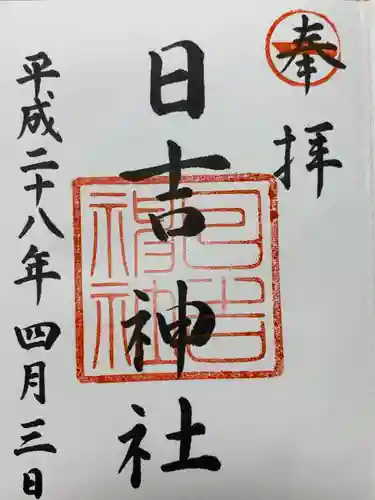 奉拝
日吉神社
平成二十八年四月三日
日吉神社